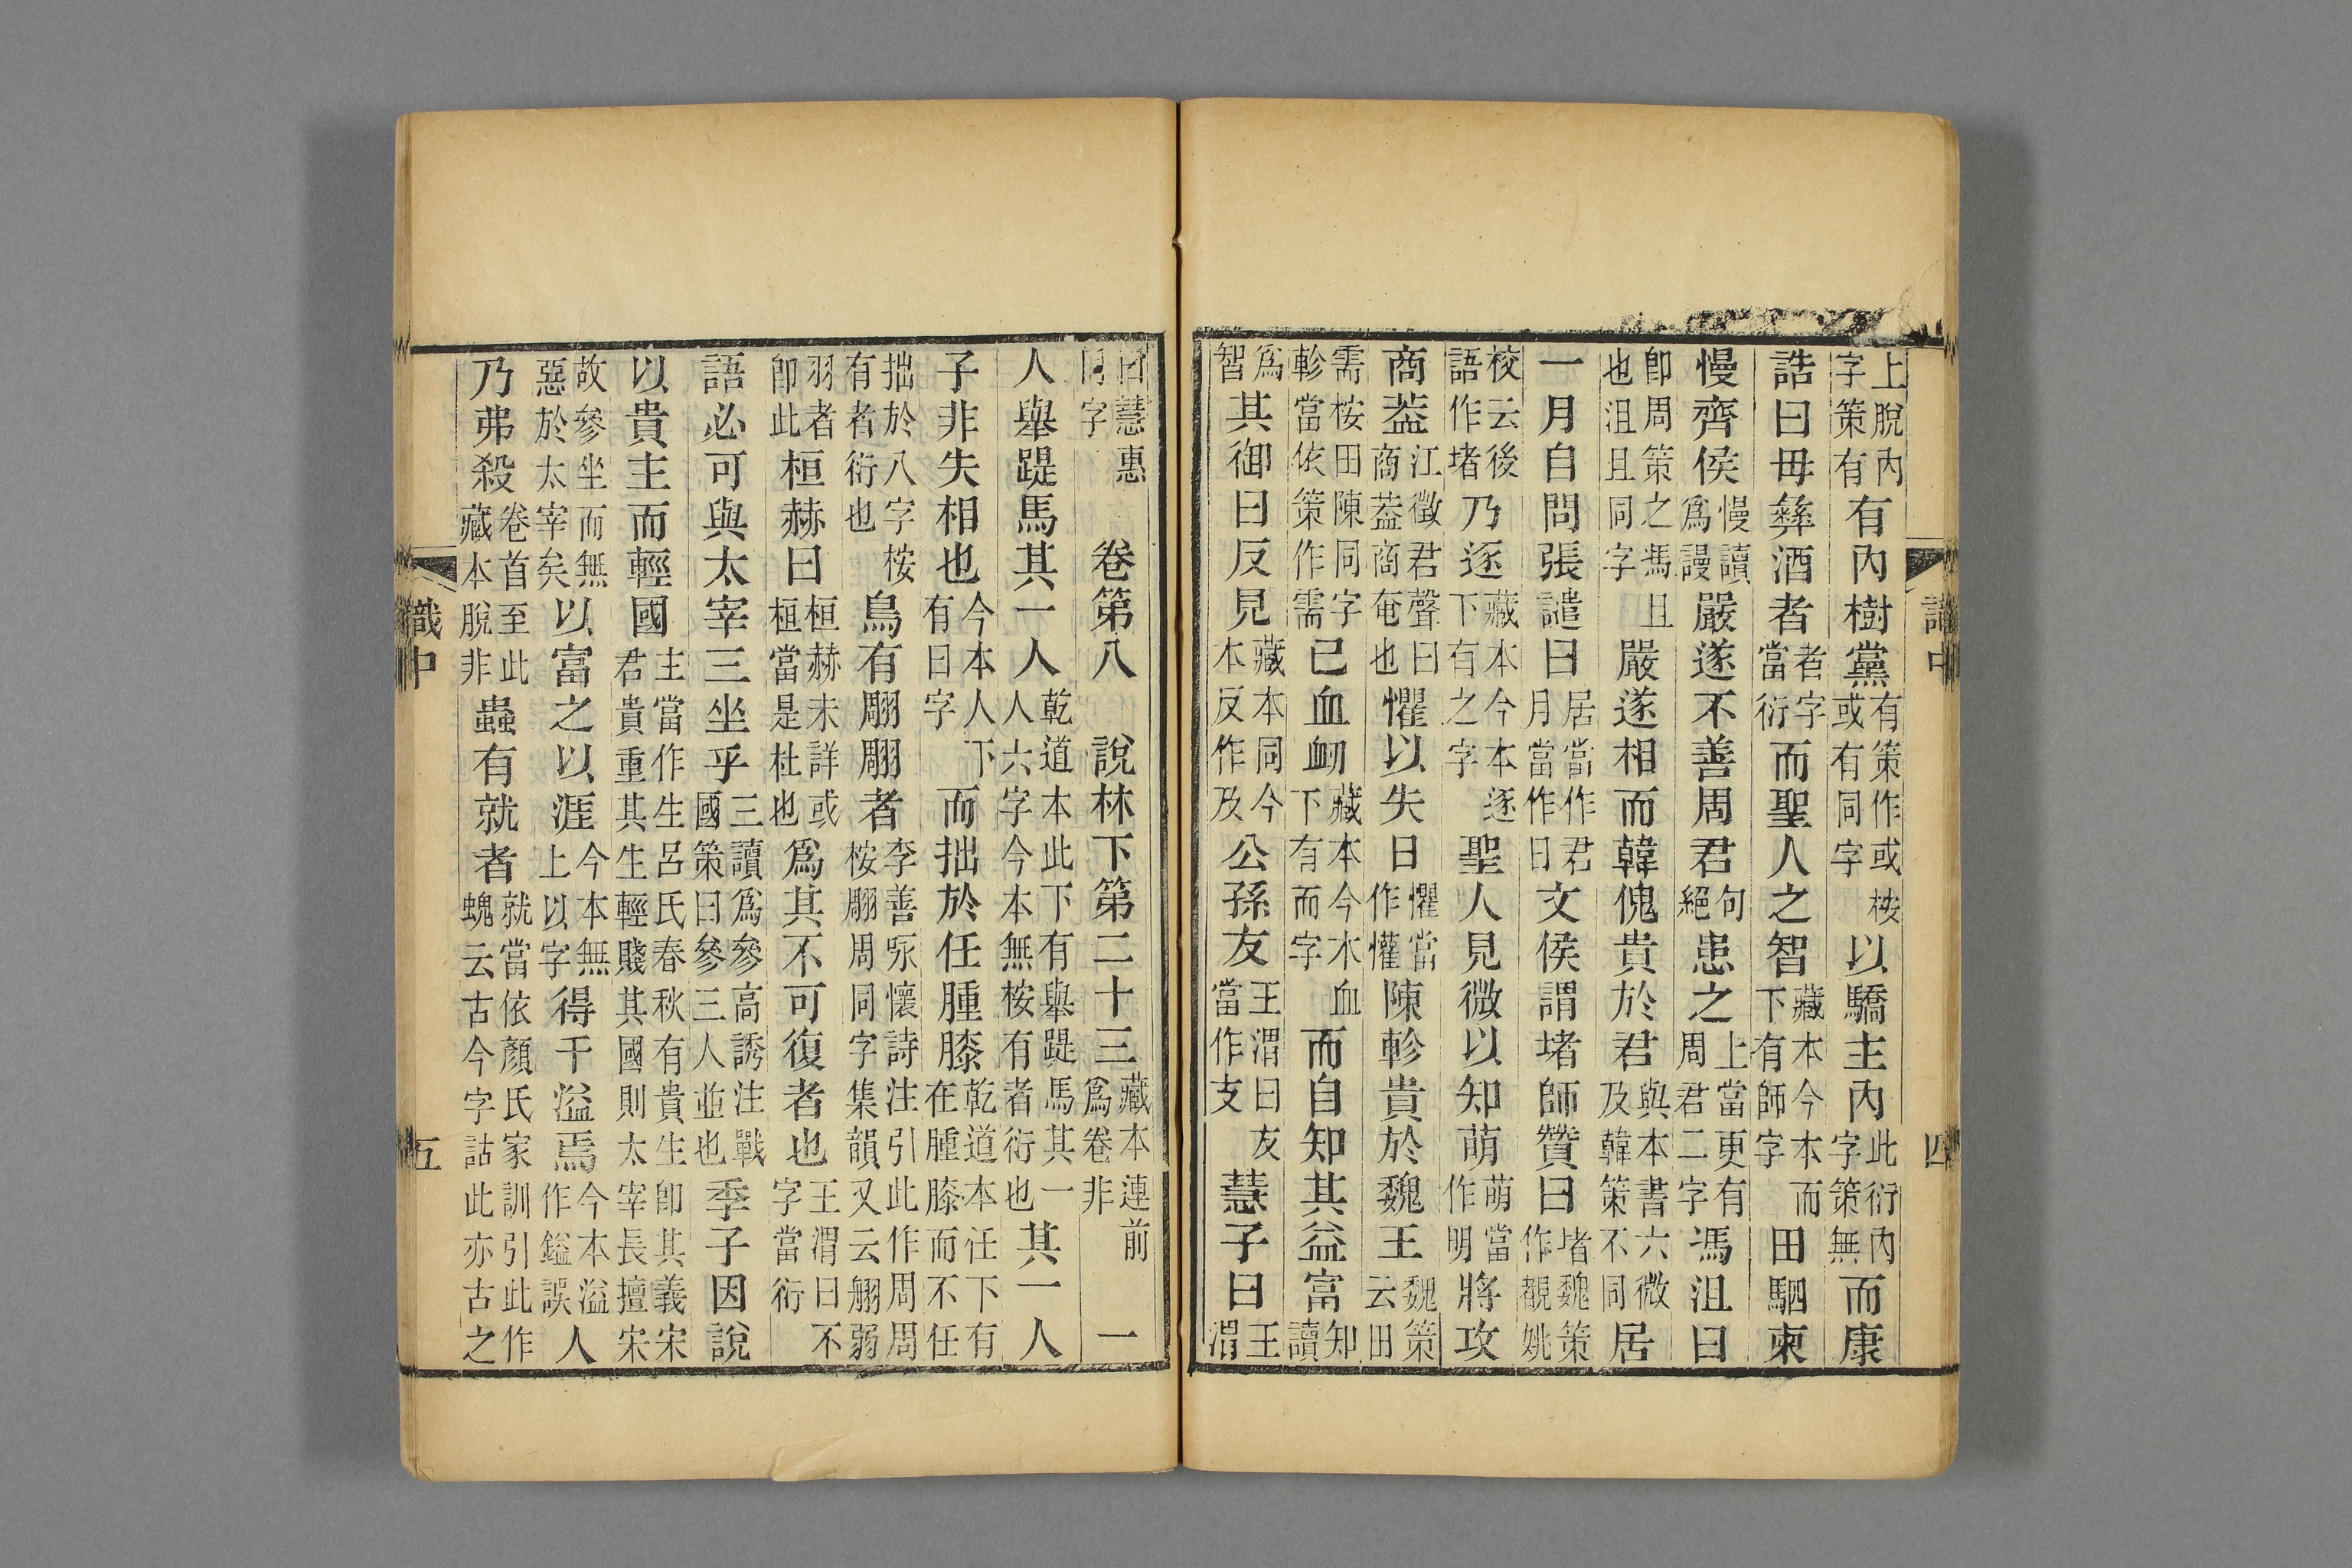 上脫內字策有有內樹黨有策作或或有同字桉以驕主內此衍內字策無而康
誥曰毋彝酒者者字當衍而聖人之智藏本今本而下有師字田駟東
慢齊侯慢讀爲謾嚴遂不善周君句絕患之上當更有周君二字馮沮曰
卽周策之馮且也沮且同字嚴遂相而韓傀貴於君與本書六微及韓策不同居
一月自問張譴曰居當作君月當作日文侯謂堵師贊曰堵魏策作覩姚
校云後語作堵乃逐藏本今本逐下有之字聖人見微以知萌萌當作明將攻
商葢江徵君聲曰商葢商奄也懼以失日懼當作懽陳軫貴於魏王魏策云田
需桉田陳同字軫當依策作需已血衂藏本今本血下有而字而自知其益富知讀
爲智其御曰反見藏本同今本反作及公孫友王渭曰友當作支慧子曰王渭
曰慧惠同字　卷第八　說林下第二十三藏本連前爲卷非　一
人舉踶馬其一人乾道本此下有舉踶馬其一人六字今本無桉有者衍也其一人
子非失相也今本人下有曰字而拙於任腫膝乾道本任下有在腫膝而不任
拙於八字桉有者衍也鳥有翢翢者李善永懷詩注引此作周周桉翢周同字集韻又云翢弱
羽者卽此桓赫曰桓赫未詳或桓當是杜也爲其不可復者也王渭曰不字當衍
語必可與太宰三坐乎三讀爲參高誘注戰國策曰參三人並也季子因說
以貴主而輕國主當作生呂氏春秋有貴生卽其義宋君貴重其生輕賤其國則太宰長擅宋
故參坐而無惡於太宰矣以富之以涯今本無上以字得干溢焉今本溢作鎰誤人
乃弗殺卷首至此藏本脫非蟲有就者就當依顏氏家訓引此作螝云古今字詁此亦古之
識中
四
識中
五